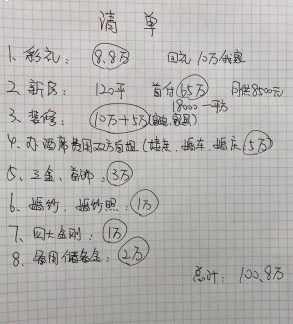 清单
1、彩礼：8.8万 回礼10万我家
2、新房：120平 首付65万 月供8500元
18000一平方
3、装修：10万+5万(家电、家具)
4、办酒席费用双方自担(婚车、婚庆)5万
5、三金、首饰：3万
6、婚纱、婚纱照：1万
7、四大金刚：1万
8、备用储备金：2万
总计：100.8万